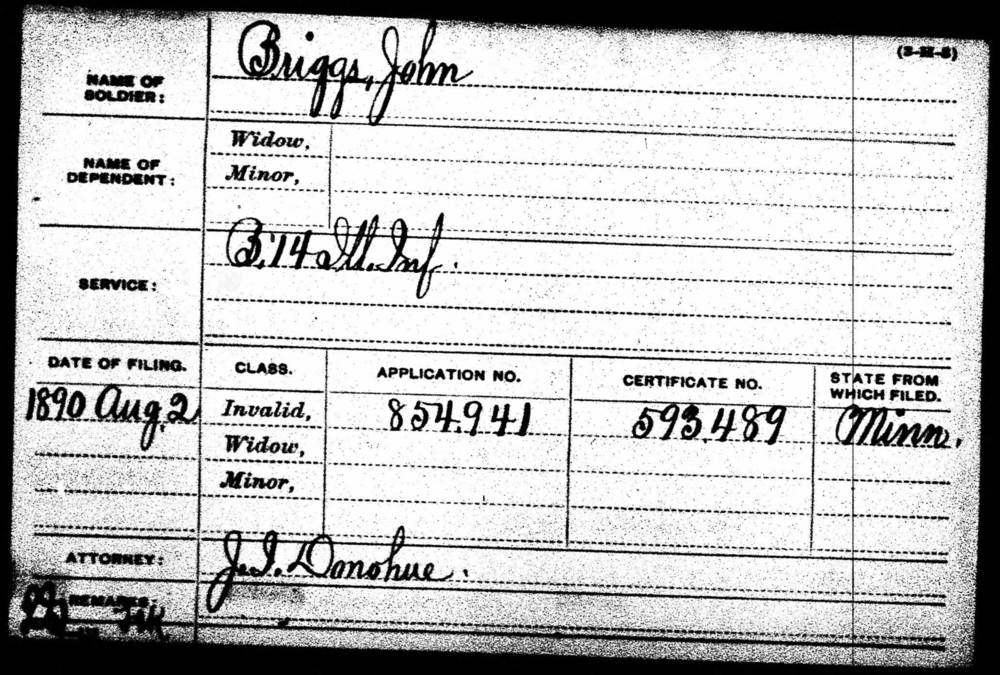 (3-H-5)
NAME OF SOLDIER: Briggs, John
NAME OF DEPENDENT: Widow,
Minor,
SERVICE: B. 14 Ill. Inf.
DATE OF FILING. CLASS. APPLICATION NO. CERTIFICATE NO. STATE FROM WHICH FILED.
1890 Aug. 2 Invalid, 854.941 593.489 Minn.
Widow,
Minor,
ATTORNEY: J. I. Donohue.
REMARKS: